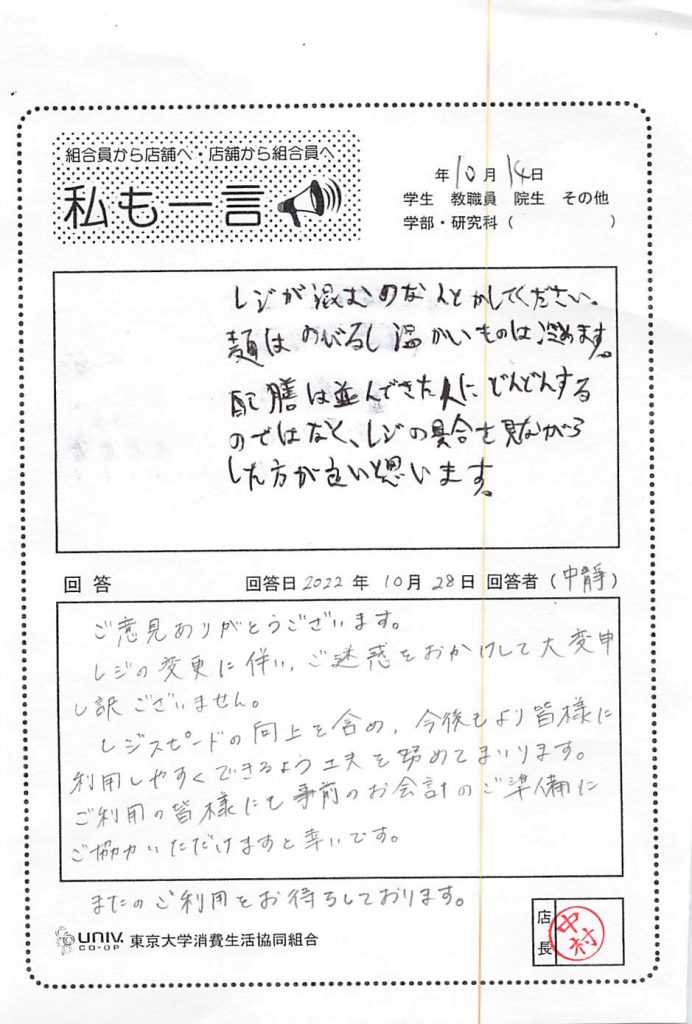 組合員から店舗へ・店舗から組合員へ
私も一言
年10月14日
学生 教職員 院生 その他
学部・研究科( )
レジが混むのなんとかしてください。
麺はのびるし温かいものは冷めます。
配膳は並んできた人にどんどんする
のではなく、レジの具合を見ながら
した方が良いと思います。
回答 回答日2022年10月28日 回答者(中静)
ご意見ありがとうございます。
レジの変更に伴い、ご迷惑をおかけして大変申
し訳ございません。
レジスピードの向上を含め、今後もより皆様に
利用しやすくできるよう工夫を努めてまいります。
ご利用の皆様にも事前のお会計のご準備に
ご協力いただけますと幸いです。
またのご利用をお待ちしております。
UNIV. CO-OP 東京大学消費生活協同組合
店長 中村